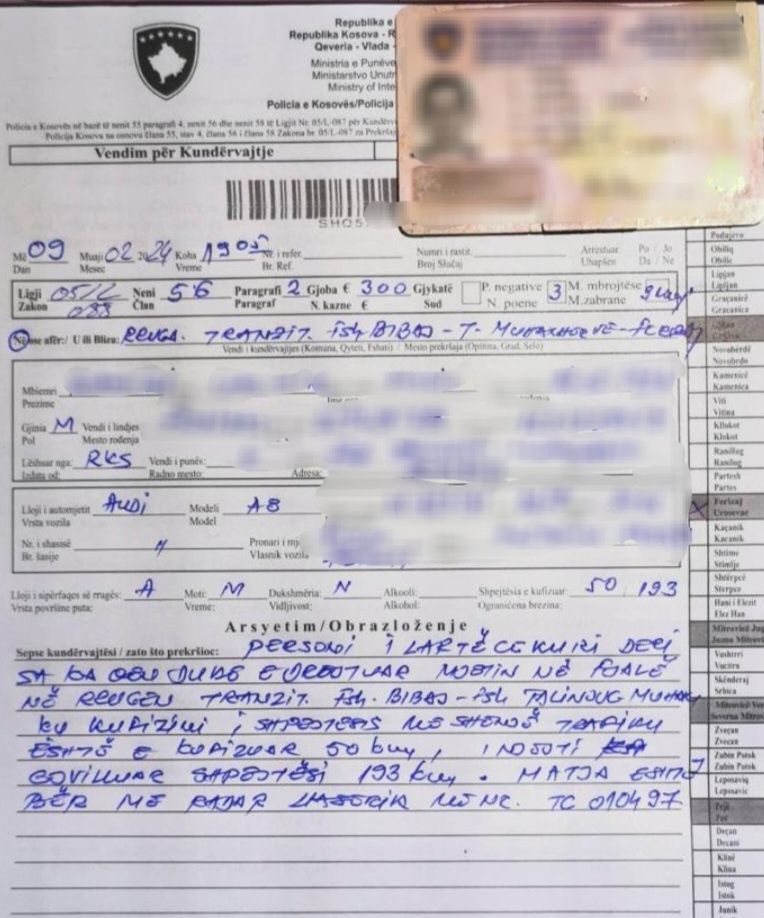 Republika e
Republika Kosova - R
Qeveria - Vlada -
Ministria e Punëve
Ministarstvo Unutr
Ministry of Inte
Policia e Kosovës/Policija
Policia e Kosovës në bazë të nenit 55 paragrafi 4, nenit 56 dhe nenit 58 të Ligjit Nr. 05/L-087 për Kundërv
Policija Kosova na osnovu člana 55, stav 4, člana 56 i člana 58 Zakona br. 05/L-087 za Prekršaj
Vendim për Kundërvajtje
SHQ5
Më 09 Muaji 02 2024 Koha 1905 Nr. i refer. Numri i rastit: Arrestuar Po / Jo
Dan Mesec Vreme Br. Ref. Broj Slučaj Uhapšen Da / Ne
Ligji 05/L Neni 56 Paragrafi 2 Gjoba € 300 Gjykatë P. negative 3 M. mbrojtëse
Zakon 088 Član Paragraf N. kazne € Sud N. poene M.zabrane
Në ose afër:/ U ili Blizu: RRUGA. TRANZIT. fsh. BIBAJ - T-
Vendi i kundërvajtjes (Komuna, Qyteti, Fshati) / Mesto prekršaja (Opština, Grad, Selo)
Mbiemri
Prezime
Gjinia M Vendi i lindjes
Pol Mesto rođenja
Lëshuar nga: RKS Vendi i punës:
Izdata od: Radno mesto: Adresa:
Lloji i automjetit AUDI Modeli A8
Vrsta vozila Model
Nr. i shasisë 11 Pronari i mj
Br. šasije Vlasnik vozila
Lloji i sipërfaqes së rrugës: A Moti: M Dukshmëria: N Alkooli: Shpejtësia e kufizuar: 50 193
Vrsta površine puta: Vreme: Vidljivost: Alkohol: Ograničena brezina:
Arsyetim/Obrazloženje
Sepse kundërvajtësi / zato što prekršioc: PERSONI I LARTË CEKURI DERI
SA KA QEN DUKE E DREJTUAR MJETIN NË FJALË
NË RRUGEN TRANZIT. fsh. BIBAJ - fsh
KU KUFIZIMI I SHPEJTESIS ME SHENJË TRAFIKU
ËSHTË E KUFIZUAR 50 km, I NJEJTI
SHPEJTËSI 193 km. MATJA ESHTË
BËR ME RADAR LASERIK ME NR. TC 010497
Podujevo
Obiliq
Obilic
Lipjan
Lipljan
Graçanicë
Gracanica
Novobërdë
Novobrdo
Kamenicë
Kamenica
Viti
Vitina
Kllokot
Klokot
Ranillug
Ranilug
Partesh
Partes
Ferizaj
Urosevac
Kaçanik
Kacanik
Shtime
Stimlje
Shtërpcë
Sterpce
Hani i Elezit
Elez Han
Mitrovicë Jug
Juzna Mitrovi
Vushtrri
Vucitrn
Skënderaj
Srbica
Mitrovicë Ver
Severna Mitrov
Zveçan
Zvecan
Zubin Potok
Zubin Potok
Leposaviq
Leposavic
Pejë
Pec
Deçan
Decani
Klinë
Klina
Istog
Istok
Junik